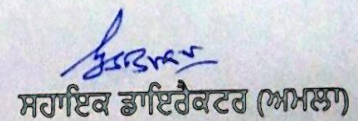 ਸਹਾਇਕ ਡਾਇਰੈਕਟਰ (ਅਮਲਾ)